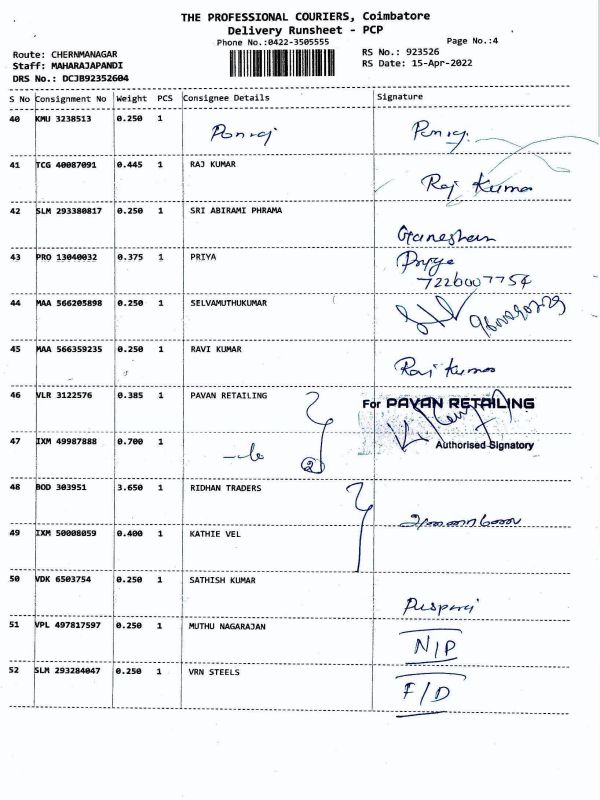 THE PROFESSIONAL COURIERS, Coimbatore
Delivery Runsheet - PCP
Phone No.:0422-3505555
Page No.:4
Route: CHERNMANAGAR
RS No.: 923526
Staff: MAHARAJAPANDI
RS Date: 15-Apr-2022
DRS No.: DCJB92352604
S No Consignment No Weight PCS Consignee Details Signature
40 KMU 3238513 0.250 1 Ponraj Ponraj
41 TCG 40087091 0.445 1 RAJ KUMAR Raj Kumar
42 SLM 293380817 0.250 1 SRI ABIRAMI PHRAMA Ganeshan
43 PRO 13040032 0.375 1 PRIYA Priya
7226007754
44 MAA 566205898 0.250 1 SELVAMUTHUKUMAR
45 MAA 566359235 0.250 1 RAVI KUMAR Ravi Kumar
46 VLR 3122576 0.385 1 PAVAN RETAILING For PAVAN RETAILING
47 IXM 49987888 0.700 1 2 Authorised Signatory
48 BOD 303951 3.650 1 RIDHAN TRADERS
49 IXM 50008059 0.400 1 KATHIE VEL
50 VDK 6503754 0.250 1 SATHISH KUMAR Pusparaj
51 VPL 497817597 0.250 1 MUTHU NAGARAJAN N/P
52 SLM 293284047 0.250 1 VRN STEELS F/D